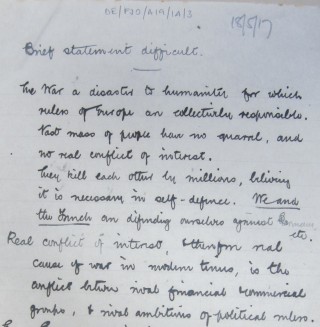 DE/FJO/A19/1A/5
18/5/17
Brief statement difficult.
The War a disaster to humanity for which
rulers of Europe are collectively responsible.
Vast mass of people have no quarrel, and
no real conflict of interest.
They kill each other by millions, believing
it is necessary in self-defence. We and
the French are defending ourselves against Germans,
etc.
Real conflict of interest, & therefore real
cause of war in modern times, is the
conflict between rival financial & commercial
groups, & rival ambitions of political rulers.